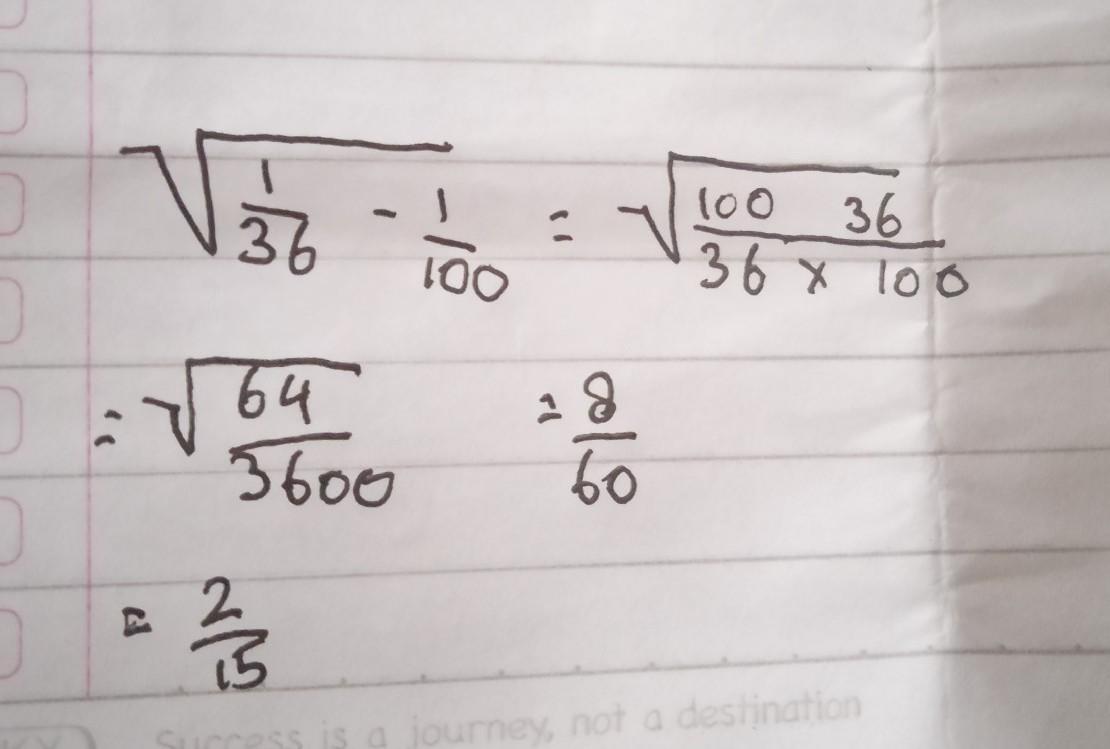 √(1/36 - 1/100) = √((100  36)/(36 × 100))
= √(64/3600) = 8/60
= 2/15
Success is a journey, not a destination